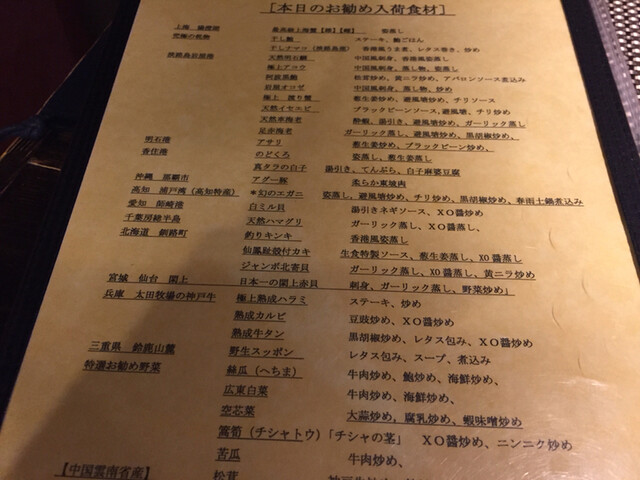 [本日のお勧め入荷食材]
上海 陽澄湖 最高級上海蟹【雌】【雄】 姿蒸し
究極の乾物 干し鮑 ステーキ、鮑ごはん
干しナマコ(淡路島産) 香港風うま煮、レタス巻き、炒め
淡路島岩屋港 天然明石鯛 中国風刺身、香港風姿蒸し
極上アコウ 中国風刺身、蒸し物、姿蒸し
阿波黒鮑 松茸炒め、黄ニラ炒め、アバロンソース煮込み
岩屋オコゼ 中国風刺身、蒸し物、炒め
極上 渡り蟹 葱生姜炒め、避風塘炒め、チリソース
天然イセエビ ブラックビーンソース炒め、避風塘、チリ炒め
天然車海老 酔蝦、湯引き、避風塘炒め、ガーリック蒸し
足赤海老 ガーリック蒸し、避風塘炒め、黒胡椒炒め、
明石港 アサリ 葱生姜炒め、ブラックビーン炒め、
香住港 のどくろ 姿蒸し、葱生姜蒸し
真タラの白子 湯引き、てんぷら、白子麻婆豆腐
沖縄 那覇市 アグー豚 柔らか東坡肉
高知 浦戸湾(高知特産) *幻のエガニ 姿蒸し、避風塘炒め、チリ炒め、黒胡椒炒め、春雨土鍋煮込み
愛知 師崎港 白ミル貝 湯引きネギソース、XO醤炒め
千葉房総半島 天然ハマグリ ガーリック蒸し、XO醤蒸し、
北海道 釧路町 釣りキンキ 香港風姿蒸し
仙鳳趾殻付カキ 生食特製ソース、葱生姜蒸し、XO醤蒸し
ジャンボ北寄貝 ガーリック蒸し、XO醤蒸し、黄ニラ炒め
宮城 仙台 閖上 日本一の閖上赤貝 刺身、ガーリック蒸し、野菜炒め」
兵庫 太田牧場の神戸牛 極上熟成ハラミ ステーキ、炒め
熟成カルビ 豆豉炒め、XO醤炒め
熟成牛タン 黒胡椒炒め、レタス包み、XO醤炒め
三重県 鈴鹿山麓 野生スッポン レタス包み、スープ、煮込み
特選お勧め野菜 絲瓜(へちま) 牛肉炒め、鮑炒め、海鮮炒め、
広東白菜 牛肉炒め、海鮮炒め、
空芯菜 大蒜炒め、腐乳炒め、蝦味噌炒め
萵笋(チシャトウ)「チシャの茎」 XO醤炒め、ニンニク炒め
苦瓜 牛肉炒め、
【中国雲南省産】 松茸